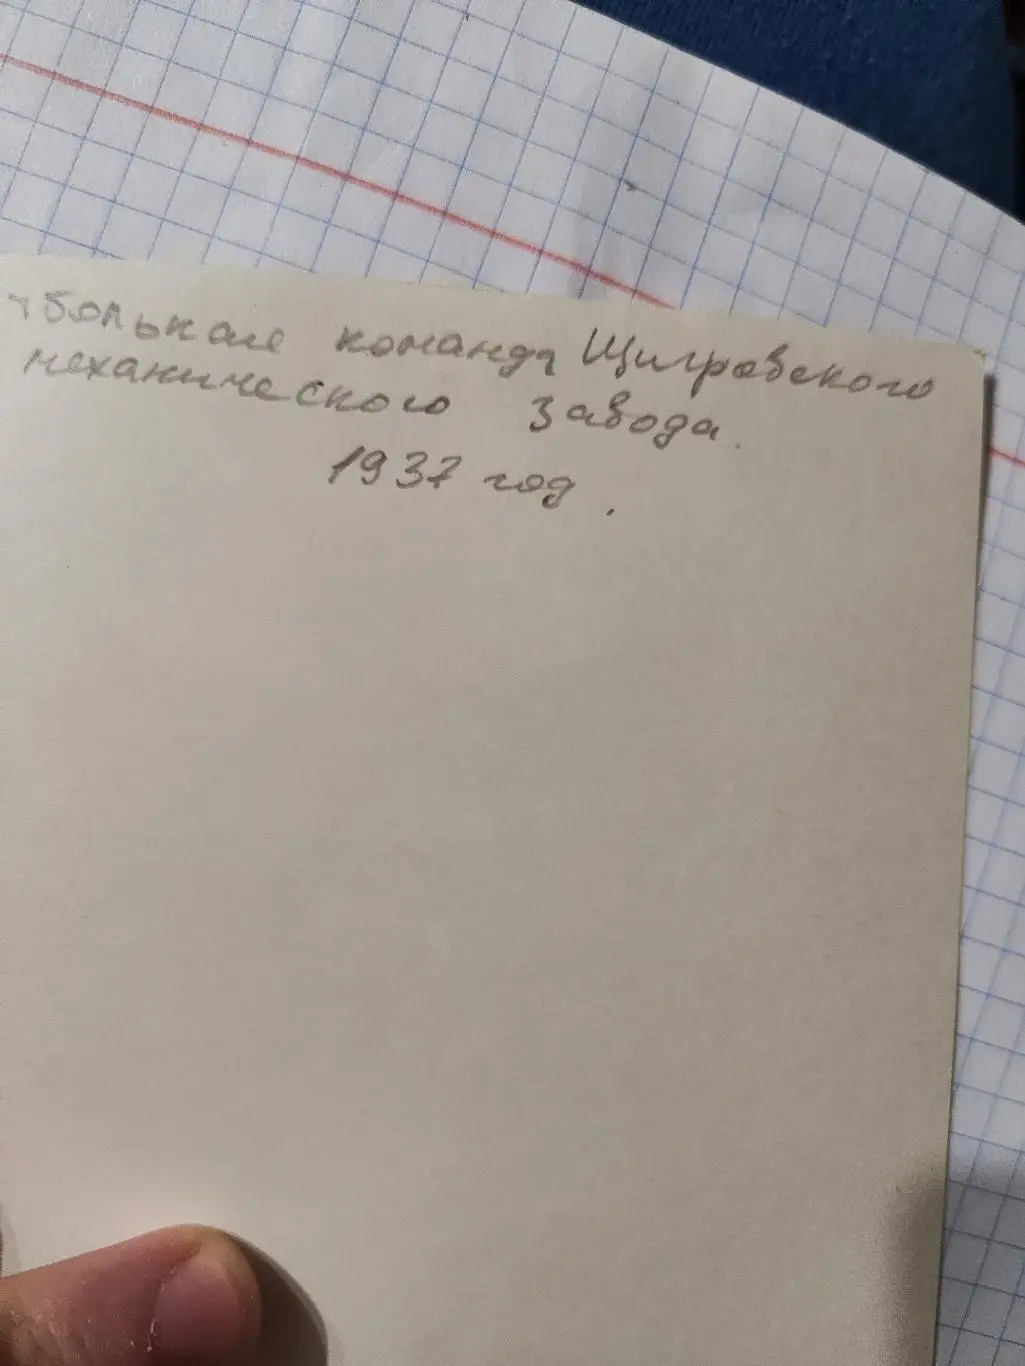 тбольная команда Щигровского
механического завода.
1937 год.